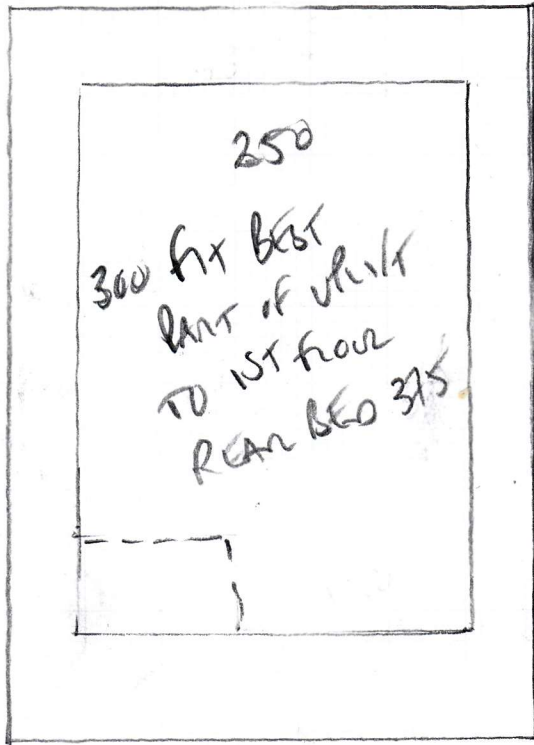 250
300 FIX BEST
PART OF UPLIFT
TO 1ST FLOOR
REAR BED 375